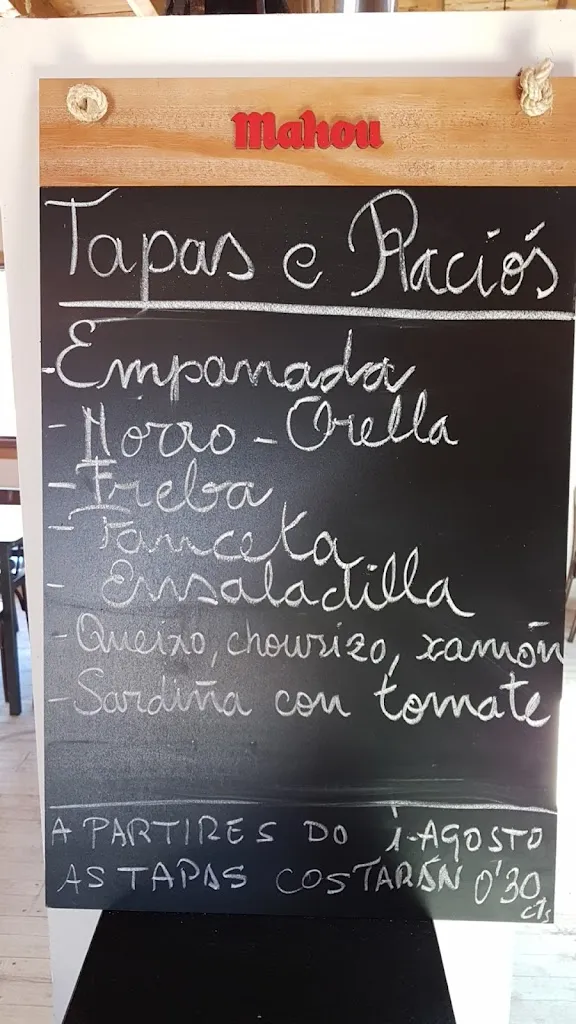 Mahou
Tapas e Raciós
- Empanada
- Morro - Orella
- Freba
- Panceta
- Ensaladilla
- Queixo, chourizo, xamón
- Sardiña con tomate
A PARTIRES DO 1-AGOSTO
AS TAPAS COSTARÁN 0'30
cts